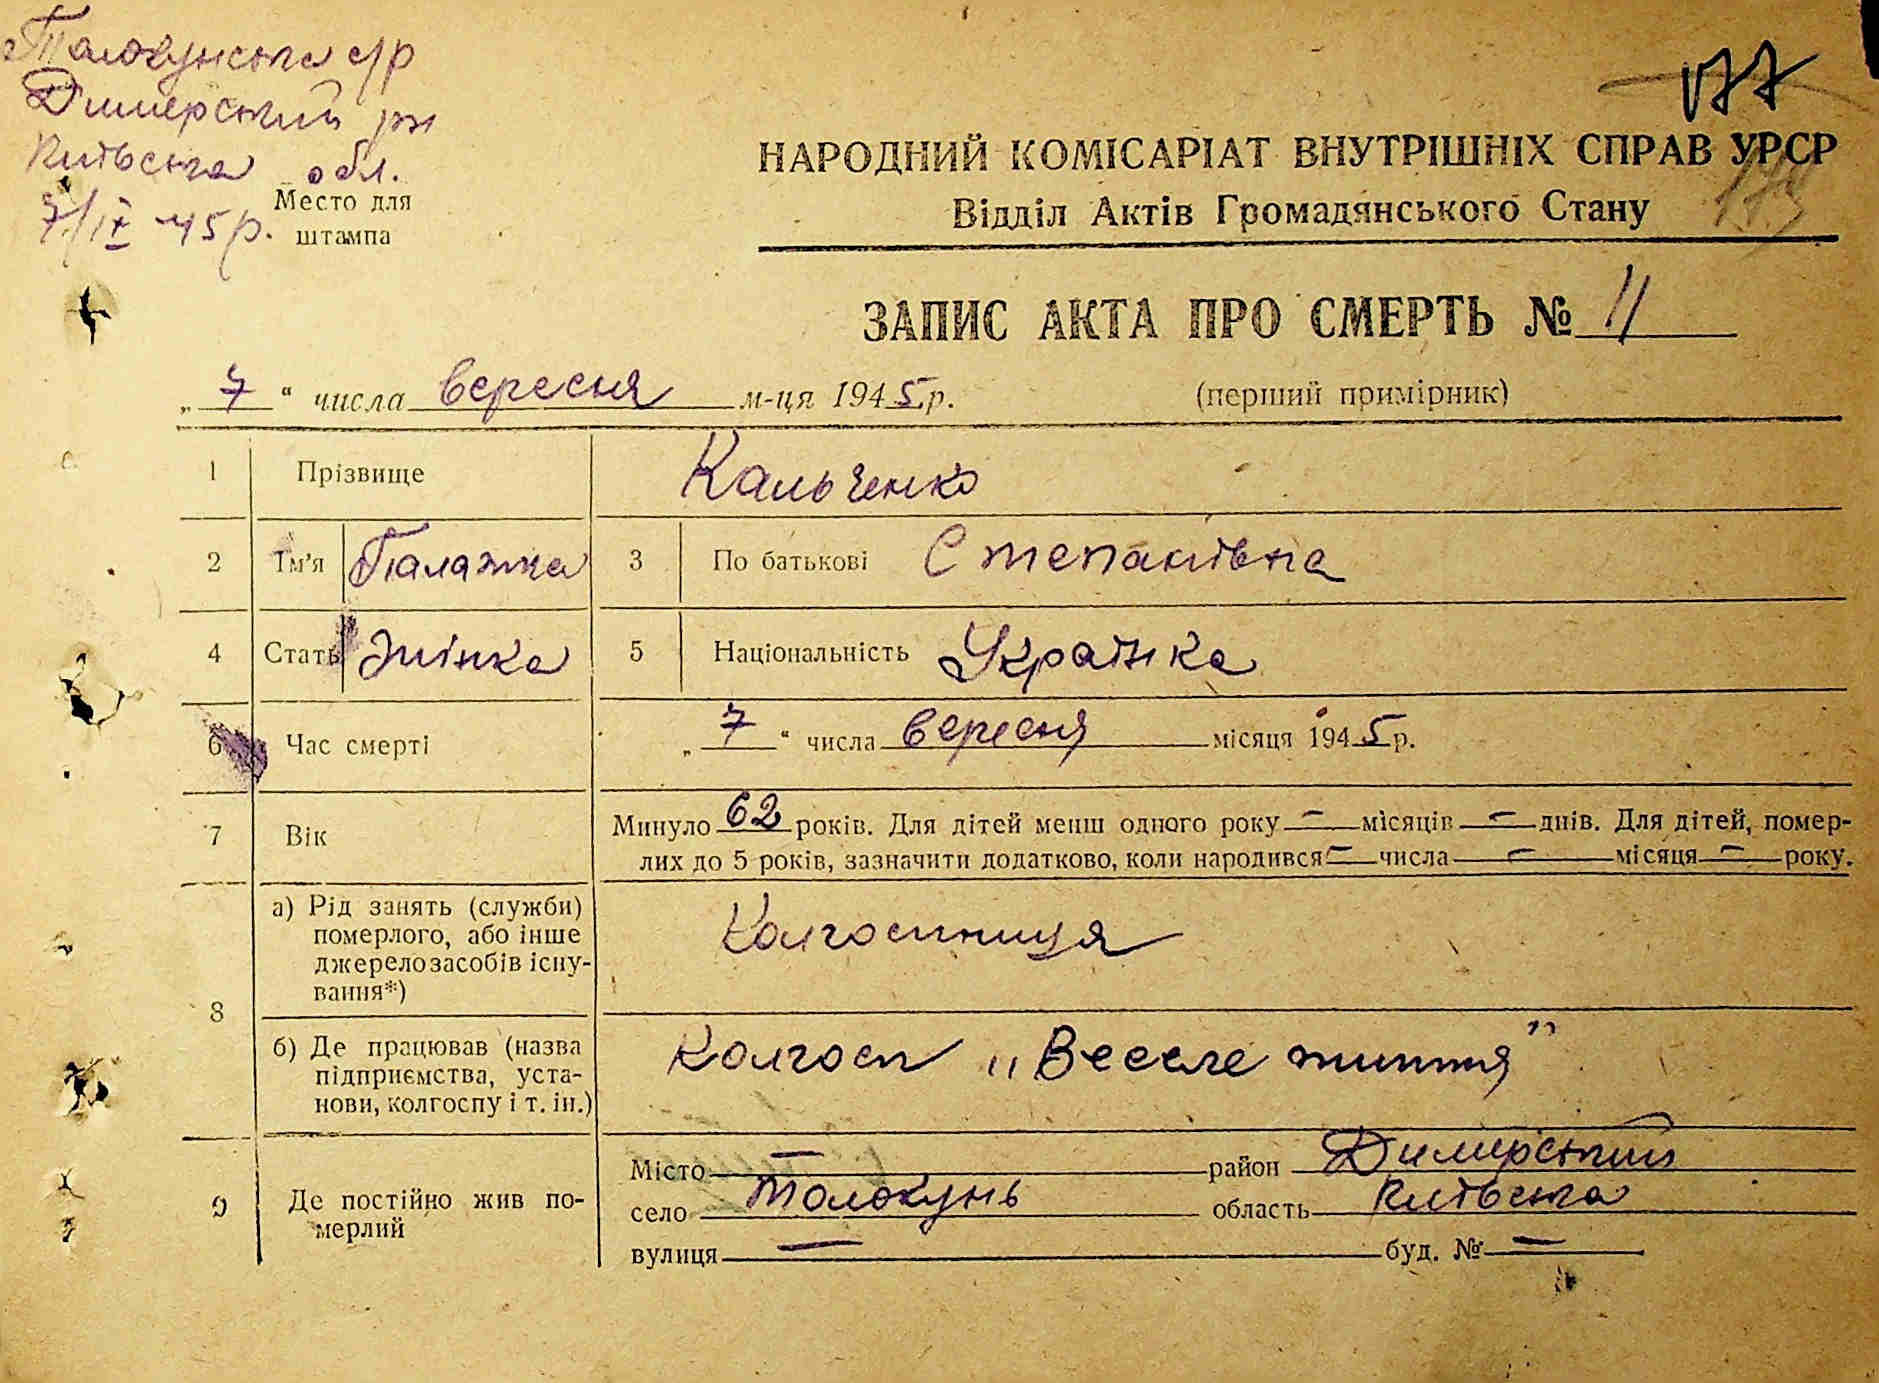 Толокунська с/р
Димерський рн
Київська обл.
7/IX 45 р.
Место для
штампа
177
173
НАРОДНИЙ КОМІСАРІАТ ВНУТРІШНІХ СПРАВ УРСР
Відділ Актів Громадянського Стану
ЗАПИС АКТА ПРО СМЕРТЬ № 11
„ 7 “ числа вересня м-ця 1945 р. (перший примірник)
1 Прізвище Кальченко
2 Ім’я Палажка 3 По батькові Степанівна
4 Стать Жінка 5 Національність Українка
6 Час смерті „ 7 “ числа вересня місяця 1945 р.
7 Вік Минуло 62 років. Для дітей менш одного року — місяців — днів. Для дітей, помер-
лих до 5 років, зазначити додатково, коли народився — числа — місяця — року.
8 а) Рід занять (служби)
померлого, або інше
джерело засобів існу-
вання*)
Колгоспниця
б) Де працював (назва
підприємства, уста-
нови, колгоспу і т. ін.)
Колгосп „Веселе життя”
9 Де постійно жив по-
мерлий
Місто — район Димерський
село Толокунь область Київська
вулиця — буд. № —